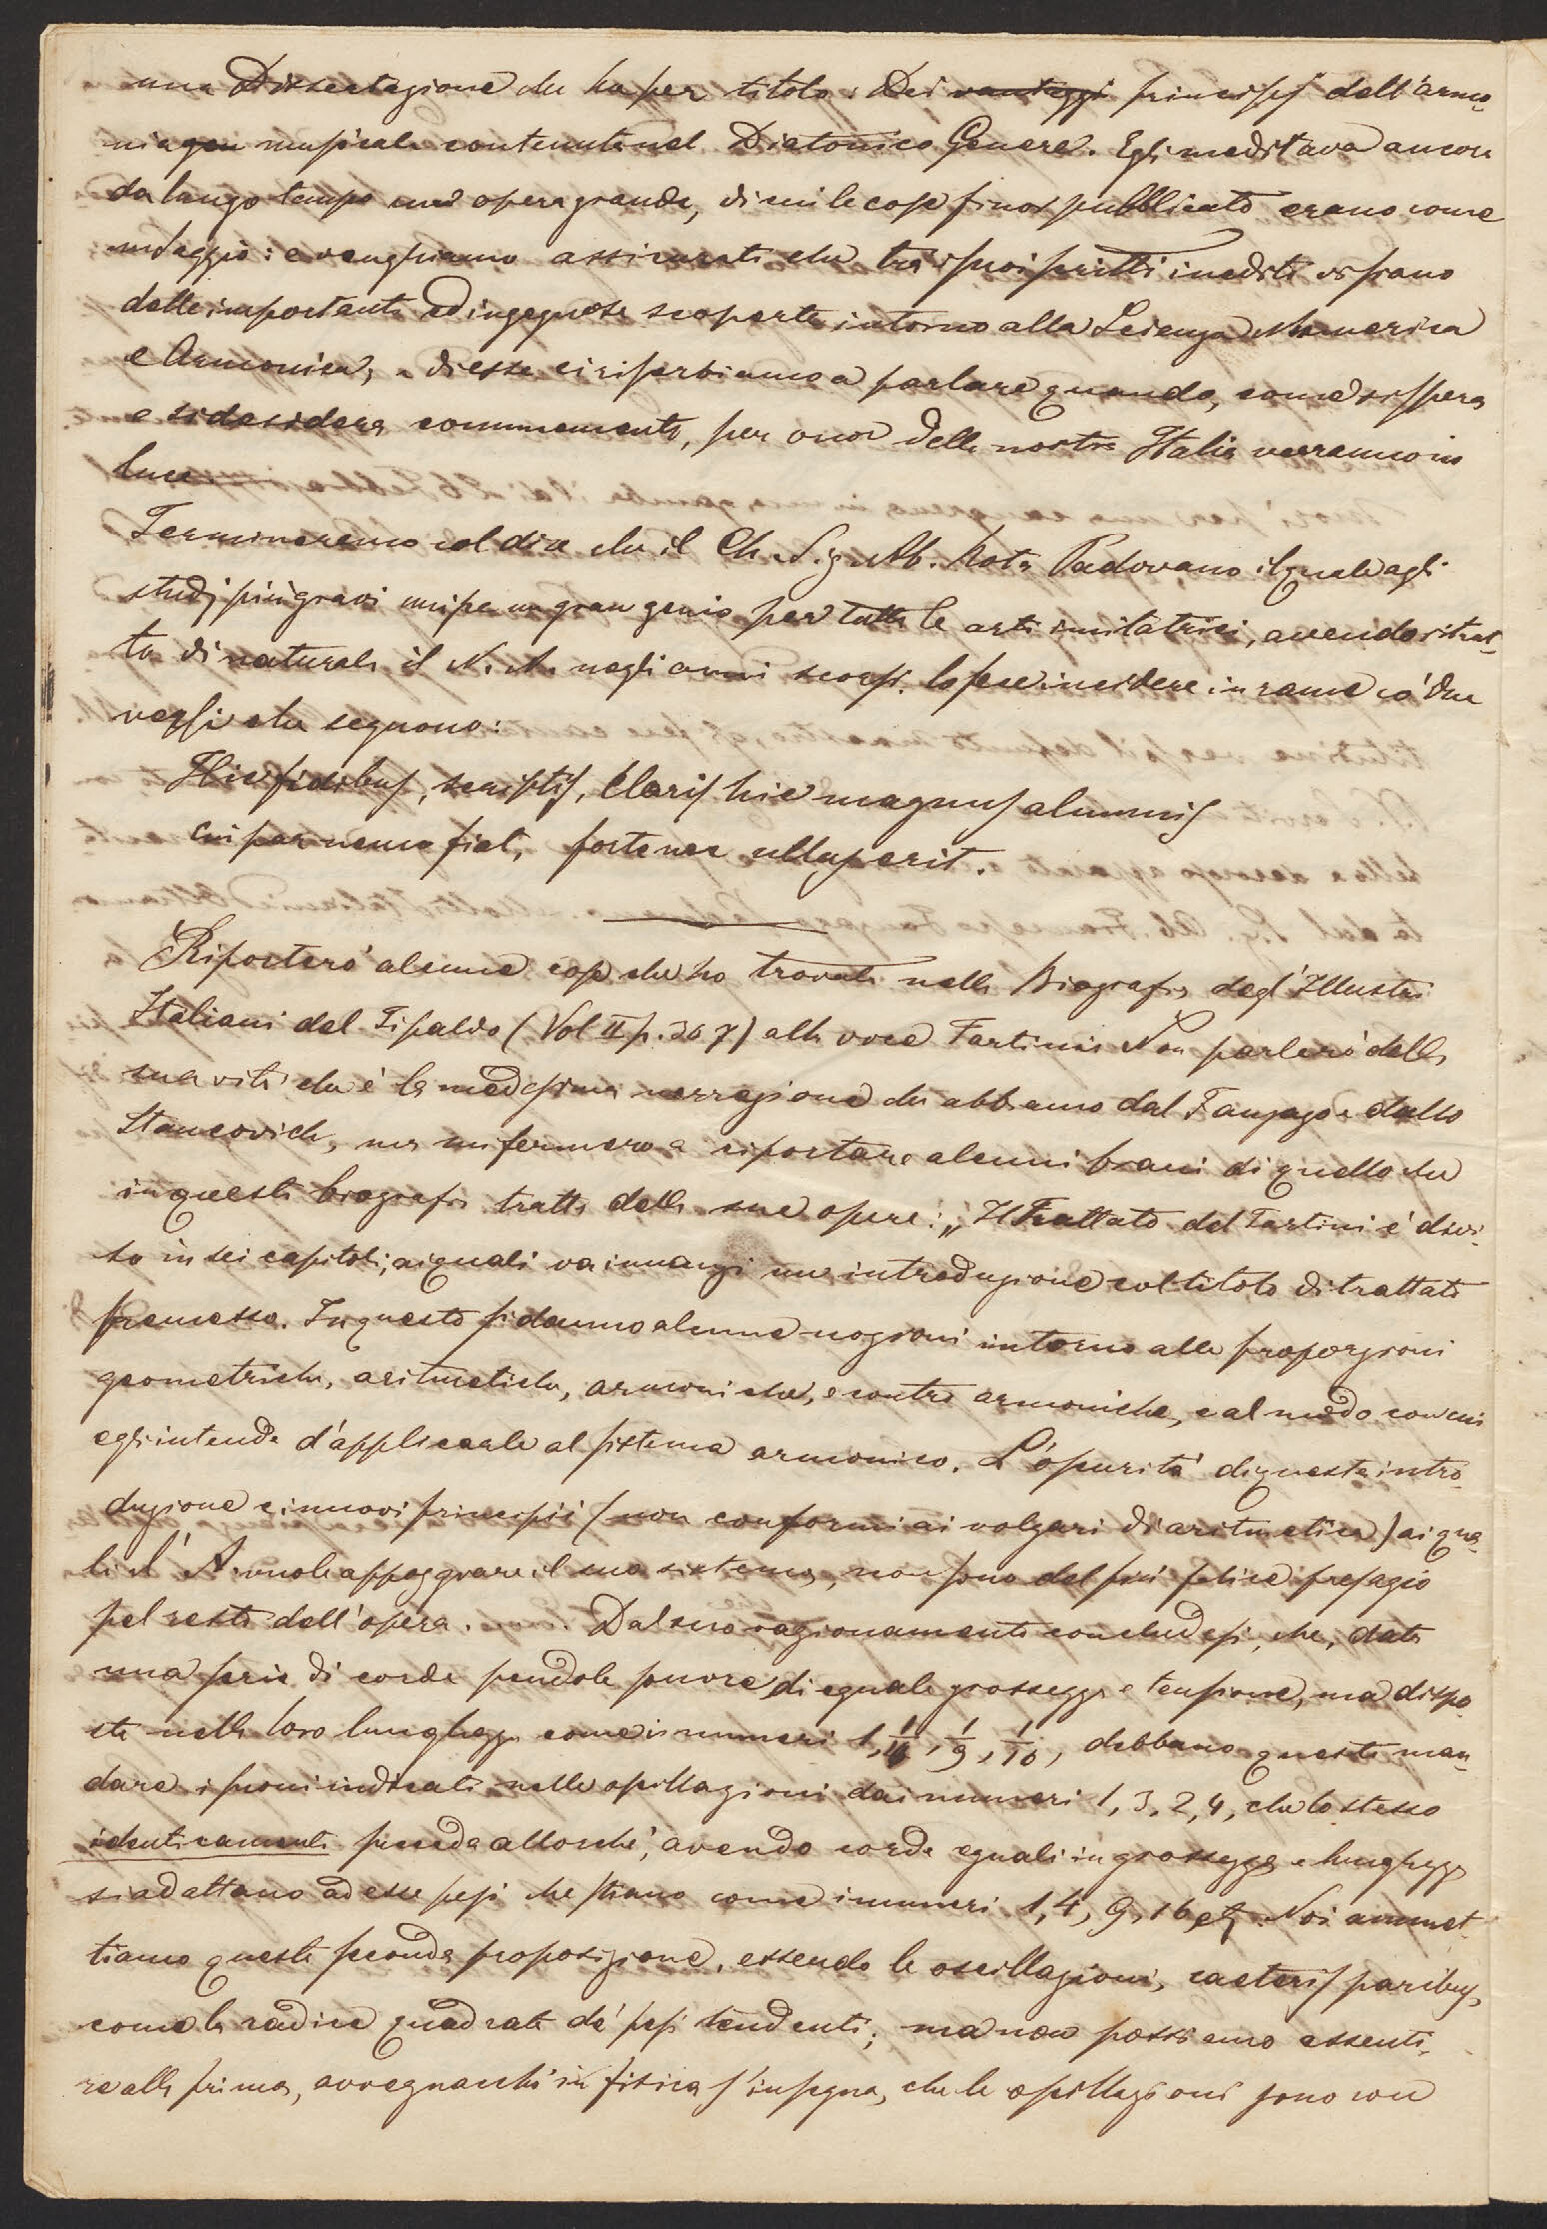 una Dissertazione che ha per titolo: Dei vantaggi principj dell'armo-
nia gen musicale contenuta nel Diatonico Genere. Egli meditava ancora
da lungo tempo una opera grande, di cui le cose finor pubblicate erano come
un saggio: e venghiamo assicurati che tra i suoi scritti inediti vi siano
delle importanti ed ingegnose scoperte intorno alla Scienza Numerica
e Armonica, e di esse ci riserbiamo a parlare quando, come si spera
e si desidera comunemente, per onor della nostra Italia verranno in
luce.
Termineremo col dire che il Ch. Sig. Ab. Rota Padovano il quale agli
studj più gravi unisce un gran genio per tutte le arti imitatrici, avendo ritrat-
to di naturale il N. A. negli anni scorsi, lo fece incidere in rame co' due
versi che seguono:
Hic fidibus, scriptis, claris hic magnus alumnis
cui par nemo fuit, forte nec ullus erit.
Riporterò alcune cose che ho trovate nella Biografia degl'Illustri
Italiani del Tipaldo (Vol II p. 367) alla voce Tartini. Non parlerò della
sua vita che è la medesima narrazione che abbiamo dal Fanzago e dallo
Stancovich, ma mi fermerò a riportare alcuni brani di quello che
in questa biografia tratta delle sue opere: „Il Trattato del Tartini è divi-
so in sei capitoli; ai quali va innanzi una introduzione col titolo di trattato
premesso. In questo si danno alcune nozioni intorno alle proporzioni
geometriche, aritmetiche, armoniche, e contro armoniche, e al modo con cui
egli intende d'applicarle al sistema armonico. L'opurità di questa intro-
duzione e i nuovi principii (non conformi ai volgari di aritmetica) ai qua-
li l'A. vuole appoggiare il suo sistema, non sono del più felice presagio
pel resto dell'opera. . . . Dal suo ragionamento concludesi, che, data
una serie di corde pendole sonore di eguale grossezza e tensione, ma dispo-
ste nella loro lunghezza come i numeri 1, 1/4, 1/9, 1/16, debbano queste man-
dare i suoni indicati nelle oscillazioni dai numeri 1, 3, 2, 4, che lo stesso
identicamente succeda allorchè, avendo corde eguali in grossezza e lunghezza
si adattano ad esse pesi che stiano come i numeri 1, 4, 9, 16, etc. Noi ammet-
tiamo questa seconda proposizione, essendo le oscillazioni, caeteris paribus,
come la radice quadrata de' pesi tendenti; ma non possiamo assenti-
re alla prima, avvegnachè in fisica s'insegna, che le oscillazioni sono con